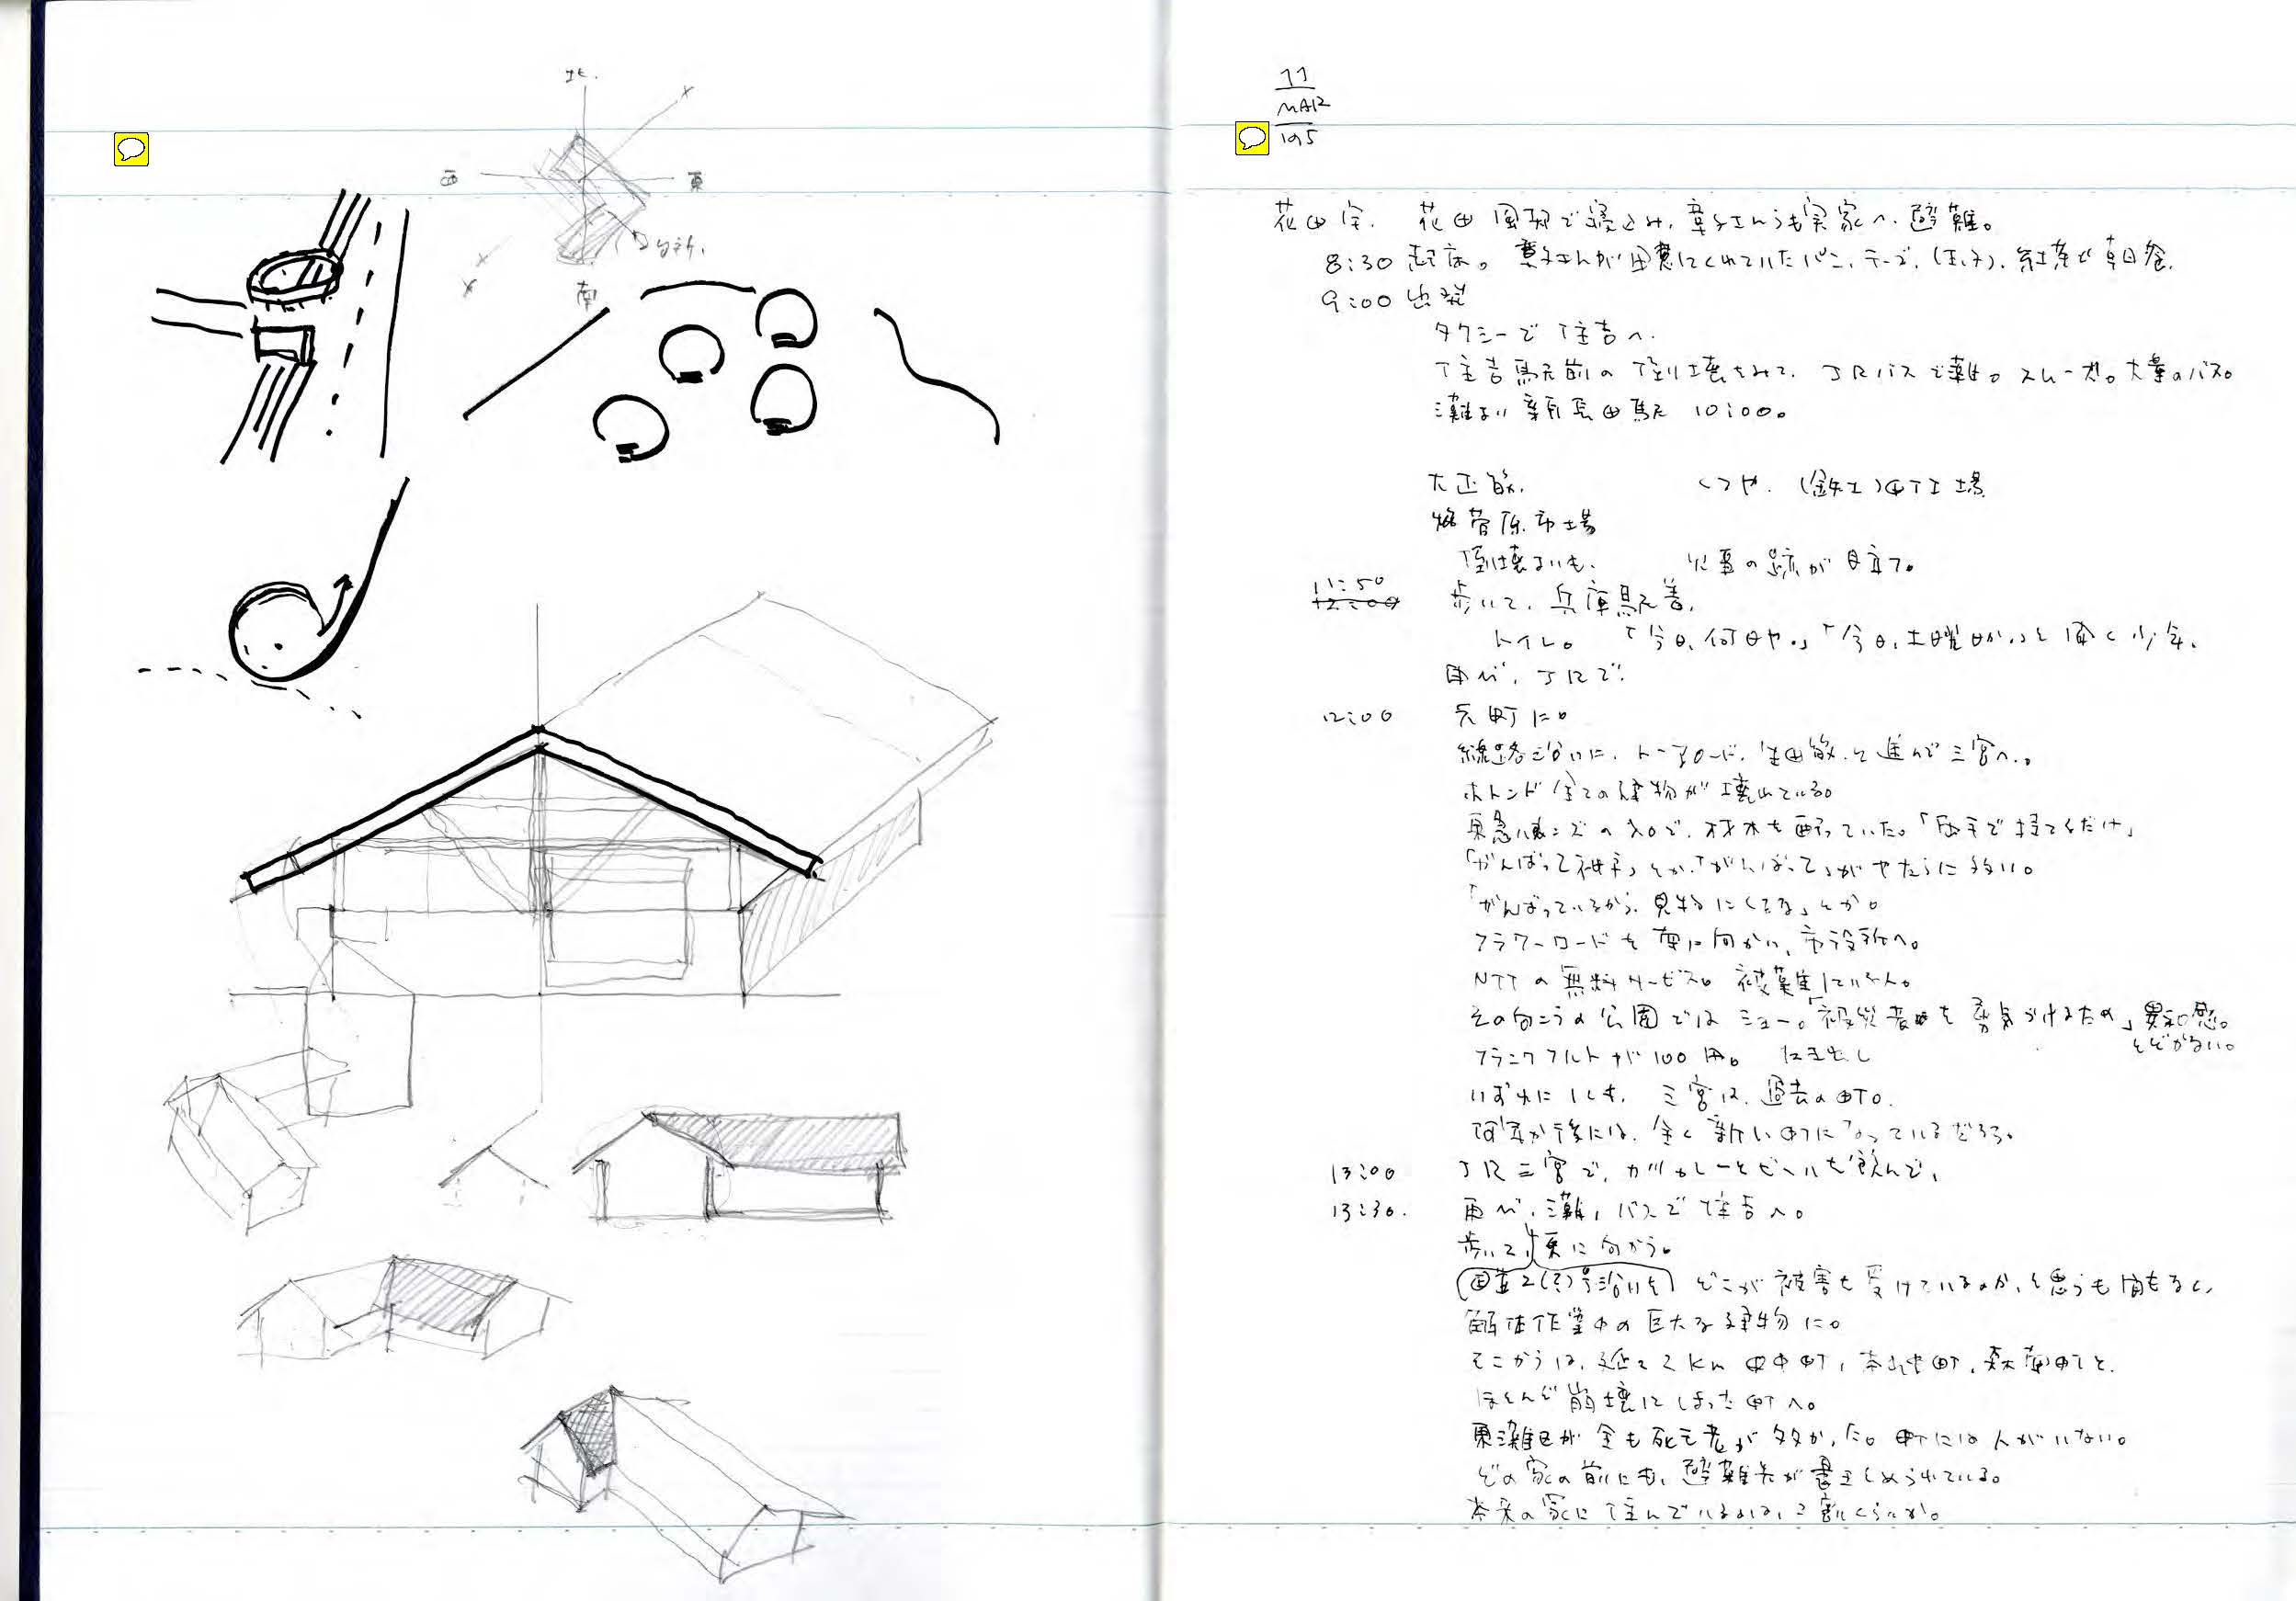 北
西
東
南
11
MAR
'95
花田宅. 花田風邪で寝込み, 章子さんらも実家へ避難。
8:30 起床。章子さんが用意してくれていたパン, チーズ, 紅茶で朝食.
9:00 出発
タクシーで住吉へ.
住吉駅前の倒壊をみて, JRバスで灘。スムーズ。大量のバス。
灘より新長田駅 10:00。
大正筋, くつや. 町工場
菅原市場
倒壊よりも, 火事の跡が目立つ。
11:50
12:00
歩いて, 兵庫駅着,
トイレ。「今日, 何日や。」「今日, 土曜日か」と聞く少年.
再び, JRで.
12:00 元町に。
線路沿いに, トーアロード, 生田筋, を進んで三宮へ。
ホトンド全ての建物が壊れている。
東急ハンズの入口で, 材木を配っていた。「両手で持てるだけ」
「がんばって神戸」とか,「がんばって」がやたらに多い。
「がんばっているから, 見物にくるな」とか。
フラワーロードを南に向かい, 市役所へ。
NTTの無料サービス。
その向こうの公園ではショー。「被災者を勇気づけるため」異和感。
そぐわない。
フランクフルトが100円。
いずれにしも, 三宮は, 過去の町。
何年か後には, 全く新しい町になっているだろう。
13:00 JR三宮で, カツカレーとビールを飲んで,
13:30. 再び, 灘, バスで住吉へ。
歩いて, 東に向かう。
国道2(?)号沿いを どこが被害を受けているのか, と思うも間もなく,
解体作業中の巨大な建物に。
そこからは, 延々2km 田中町, 本山中町, 森南町と,
ほとんど崩壊してしまった町へ。
東灘区が最も死亡者が多かった。町には人がいない。
どの家の前にも, 避難先が書きとめられている。
本来の家に住んでいるのは, 2割くらいか。